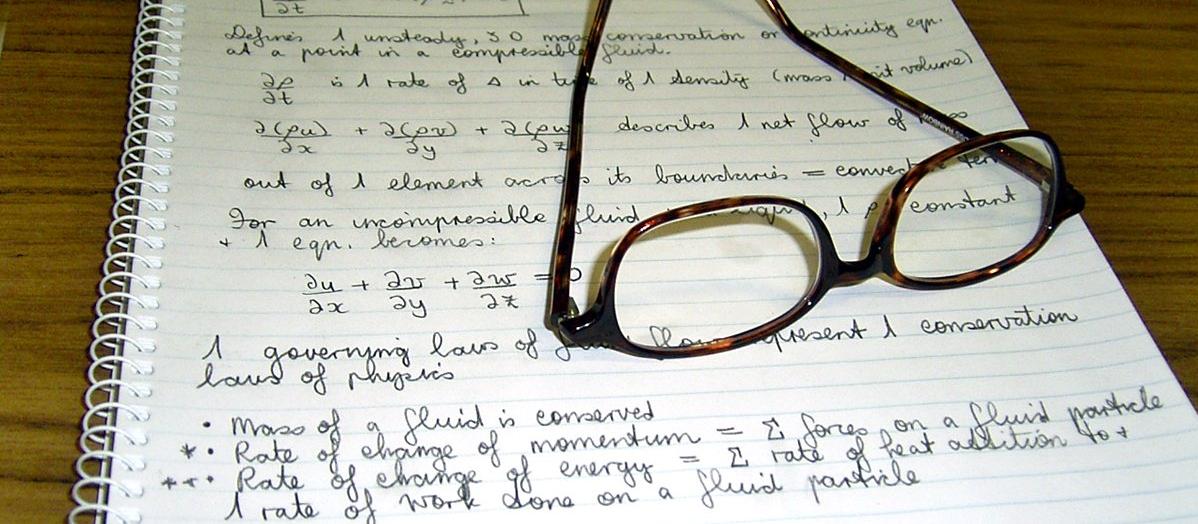 ∂t
Defines 1 unsteady, 3D mass conservation or continuity eqn.
at a point in a compressible fluid.
∂ρ/∂t is 1 rate of Δ in time of 1 density (mass unit volume)
∂(ρu)/∂x + ∂(ρv)/∂y + ∂(ρw)/∂z describes 1 net flow of mass
out of 1 element across its boundaries = convect term
For an incompressible fluid 1 ρ constant
+ 1 eqn. becomes:
∂u/∂x + ∂v/∂y + ∂w/∂z = 0
1 governing laws of flow represent 1 conservation
laws of physics
• Mass of a fluid is conserved
* • Rate of change of momentum = Σ forces on a fluid particle
** • Rate of change of energy = Σ rate of heat addition to +
1 rate of work done on a fluid particle